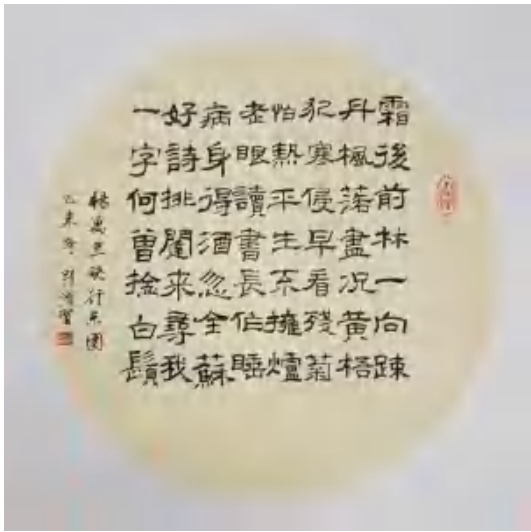 霜後前林一向踈
丹楓落盡况黄梧
犯寒侵早看殘菊
怕熱平生不擁爐
老眼讀書長作睡
病身得酒忽全蘇
好詩排闥來尋我
一字何曾捻白鬚
楊萬里晓行東園
乙未冬